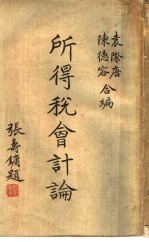 袁際唐
陳德容 合編
所得稅會計論
張壽鏞題